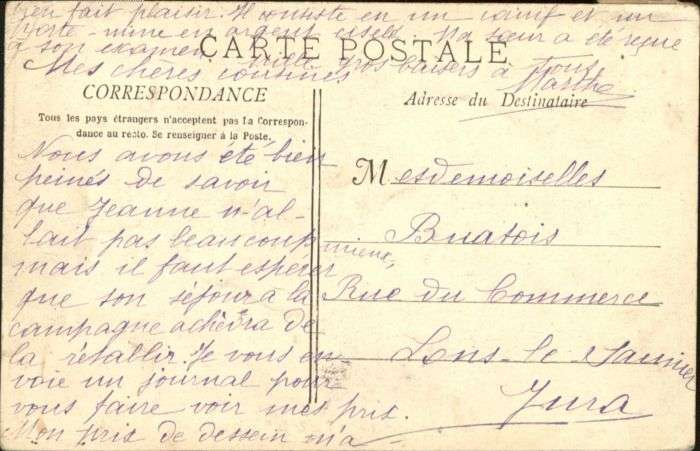 bien fait plaisir. Il consiste en un canif et un
porte-mine en argent ciselé. Ma sœur a été reçue
à son examen. Mille gros baisers à tous
Marthe
CARTE POSTALE
CORRESPONDANCE
Tous les pays étrangers n'acceptent pas la Correspon-
dance au recto. Se renseigner à la Poste.
Mes chères cousines
Nous avons été bien
peinés de savoir
que Jeanne n'al-
lait pas beaucoup
mieux,
mais il faut espérer
que son séjour à la
campagne achèvra de
la rétablir. Je vous en
voie un journal pour
vous faire voir mes prix.
Mon prix de dessein m'a
Adresse du Destinataire
Mesdemoiselles
Buatois
Rue du Commerce
Lons-le-Saunier
Jura